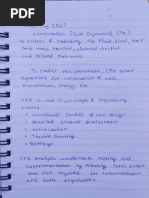 What is CFD?
Computation Fluid Dynamics (CFD)
is Science of predicting the fluid flow, heat
and mass transfer, chemical reaction
and related Phenomena
To predict this phenomena, CFD solves
equations for conservation of mass,
momentum, energy etc.
CFD is used in all stages of engineering
process
• conceptual studies of new design
• detailed product development
• optimization
• Trouble shooting
• Redesign
CFD Analysis complements testing and
experimentation by reducing total effort
and cost required for experimentation
and data acquisition